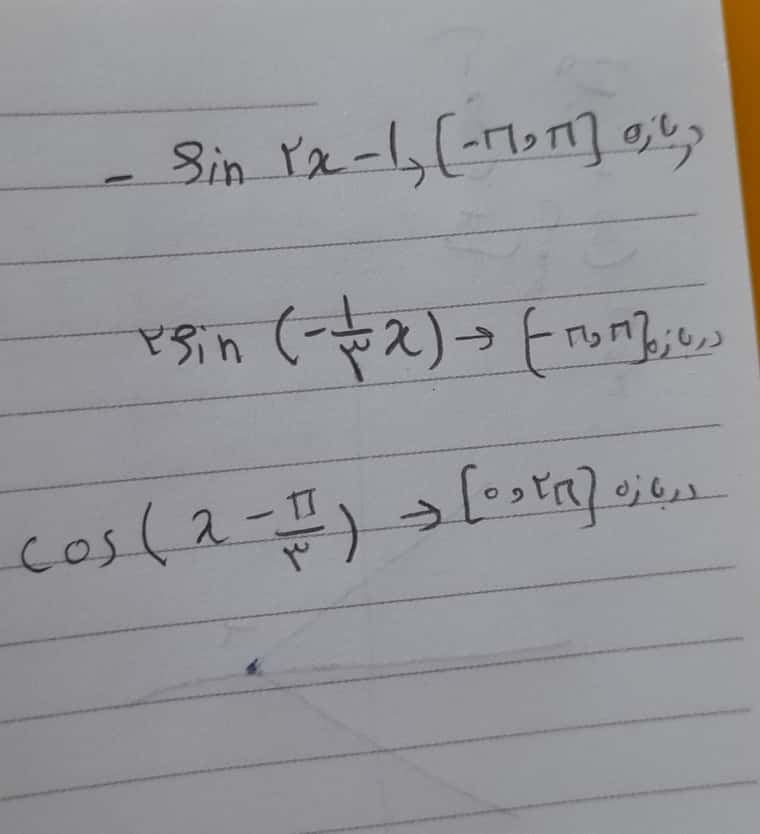 - sin ۲x - ۱, [-π و π] در بازه
۲sin (-۱/۳ x) → [-π و π] در بازه
cos(x - π/۳) → [۰ و ۲π] در بازه